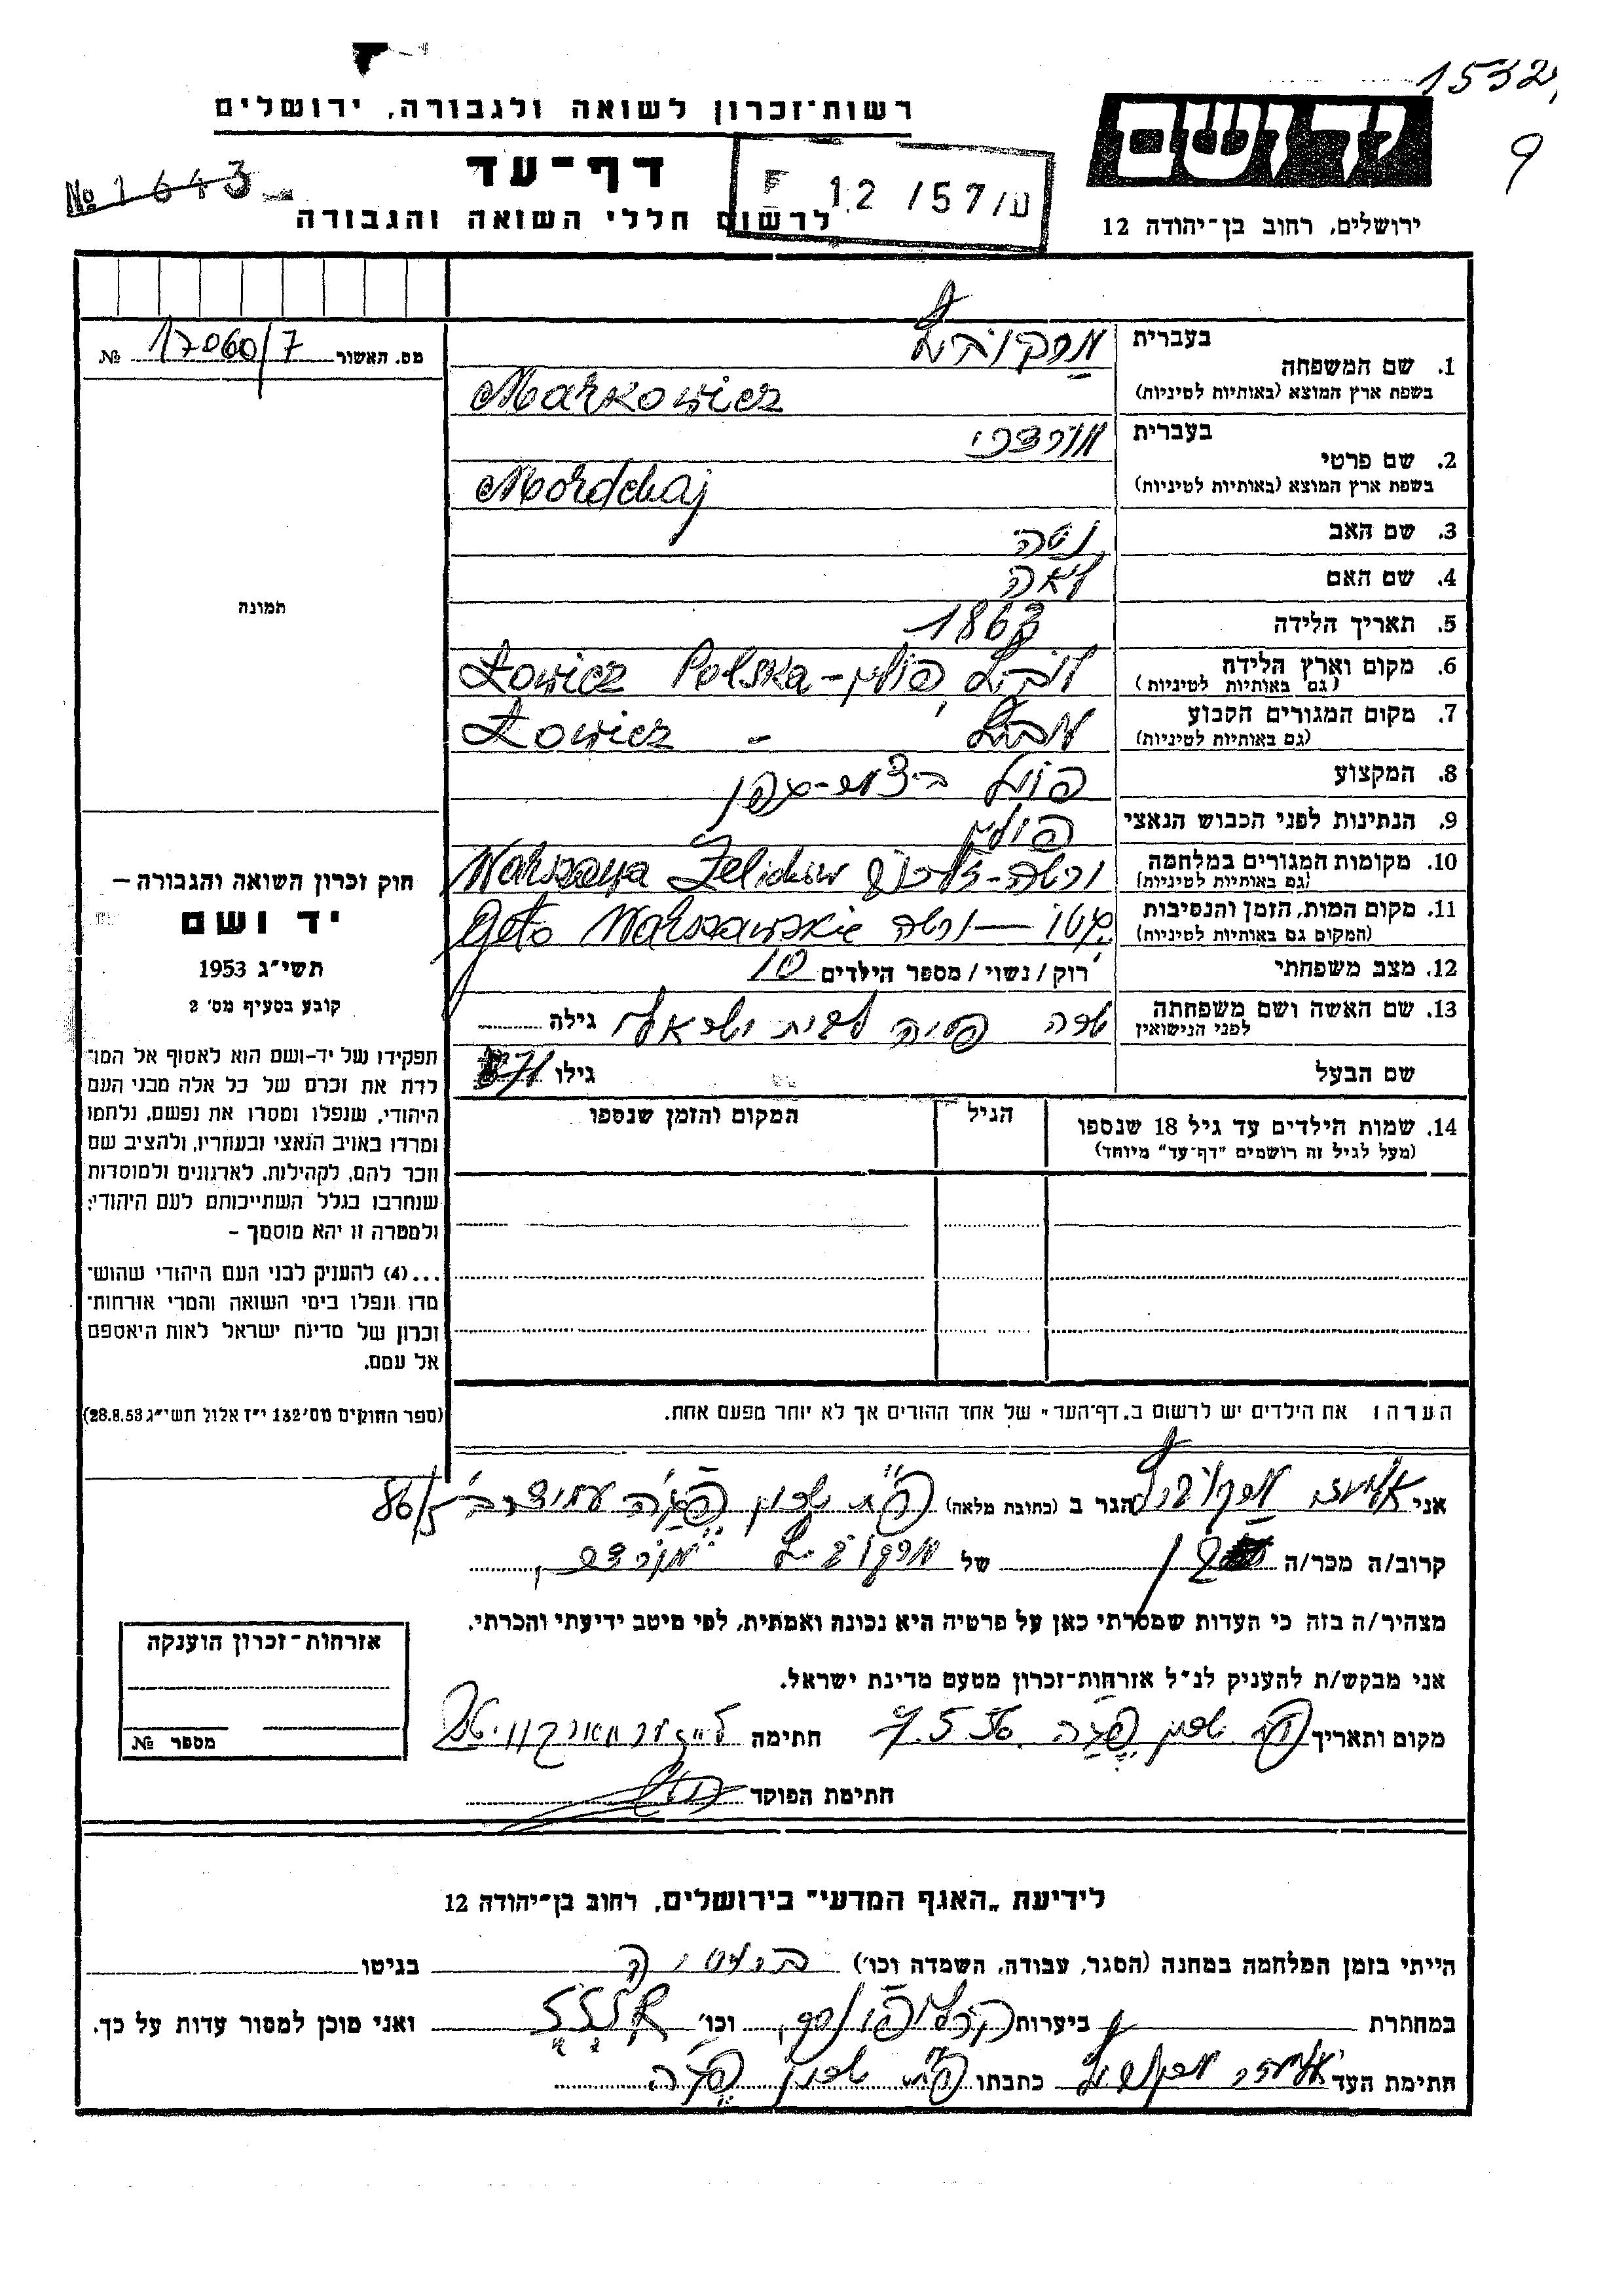 1532
9
רשות־זכרון לשואה ולגבורה, ירושלים
ידושם
דף־עד
№ 1643
12 /57/ע
לרשום חללי השואה והגבורה
ירושלים, רחוב בן־יהודה 12
מס. האשור 17060/7 №
בעברית
1. שם המשפחה
מרקוביץ
בשפת ארץ המוצא (באותיות לטיניות)
Markowicz
בעברית
2. שם פרטי
מורדכי
בשפת ארץ המוצא (באותיות לטיניות)
Mordchaj
3. שם האב נטה
4. שם האם לאה
5. תאריך הלידה 1863
6. מקום וארץ הלידה לוביץ פולין – Łowicz Polska
(גם באותיות לטיניות)
7. מקום המגורים הקבוע לוביץ – Łowicz
(גם באותיות לטיניות)
8. המקצוע
9. הנתינות לפני הכבוש הנאצי פולין
10. מקומות המגורים במלחמה ורשה - Warszawa Żelichów
(גם באותיות לטיניות)
11. מקום המות, הזמן והנסיבות גטו — ורשה Geto Warszawskie
(המקום גם באותיות לטיניות)
12. מצב משפחתי רוק/נשוי/מספר הילדים 10
13. שם האשה ושם משפחתה
לפני הנישואין
שרה לבית גילה
שם הבעל גילו 71
תמונה
14. שמות הילדים עד גיל 18 שנספו
(מעל לגיל זה רושמים "דף־עד" מיוחד)
הגיל
המקום והזמן שנספו
חוק זכרון השואה והגבורה –
יד ושם
תשי״ג 1953
קובע בסעיף מס' 2
תפקידו של יד–ושם הוא לאסוף אל המו־
לדת את זכרם של כל אלה מבני העם
היהודי, שנפלו ומסרו את נפשם, נלחמו
ומרדו באויב הנאצי ובעוזריו, ולהציב שם
וזכר להם, לקהילות, לארגונים ולמוסדות
שנחרבו בגלל השתייכותם לעם היהודי;
ולמטרה זו יהא מוסמך –
...(4) להעניק לבני העם היהודי שהוש־
מדו ונפלו בימי השואה והמרי אזרחות־
זכרון של מדינת ישראל לאות היאספם
אל עמם.
(ספר החוקים מס' 132 י״ז אלול תשי״ג 28.8.53)
הערה: את הילדים יש לרשום ב„דף־העד" של אחד ההורים אך לא יותר מפעם אחת.
אני אליעזר מרקוביץ הגר ב (כתובת מלאה) שכון עמידר 86/5
קרוב/ה מכר/ה בן של מרקוביץ מורדכי
מצהיר/ה בזה כי העדות שמסרתי כאן על פרטיה היא נכונה ואמתית, לפי מיטב ידיעתי והכרתי.
אני מבקש/ת להעניק לנ״ל אזרחות־זכרון מטעם מדינת ישראל.
מקום ותאריך שכון 7.5.56 חתימה
חתימת הפוקד
אזרחות־זכרון הוענקה
מספר №
לידיעת „האגף המדעי" בירושלים, רחוב בן־יהודה 12
הייתי בזמן המלחמה במחנה (הסגר, עבודה, השמדה וכו') ברוסיה בגיטו
במחתרת ביערות וכו' ואני מוכן למסור עדות על כך.
חתימת העד אליעזר מרקוביץ כתבתו שכון